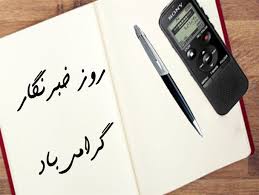 روز خبرنگار
گرامی باد
SONY